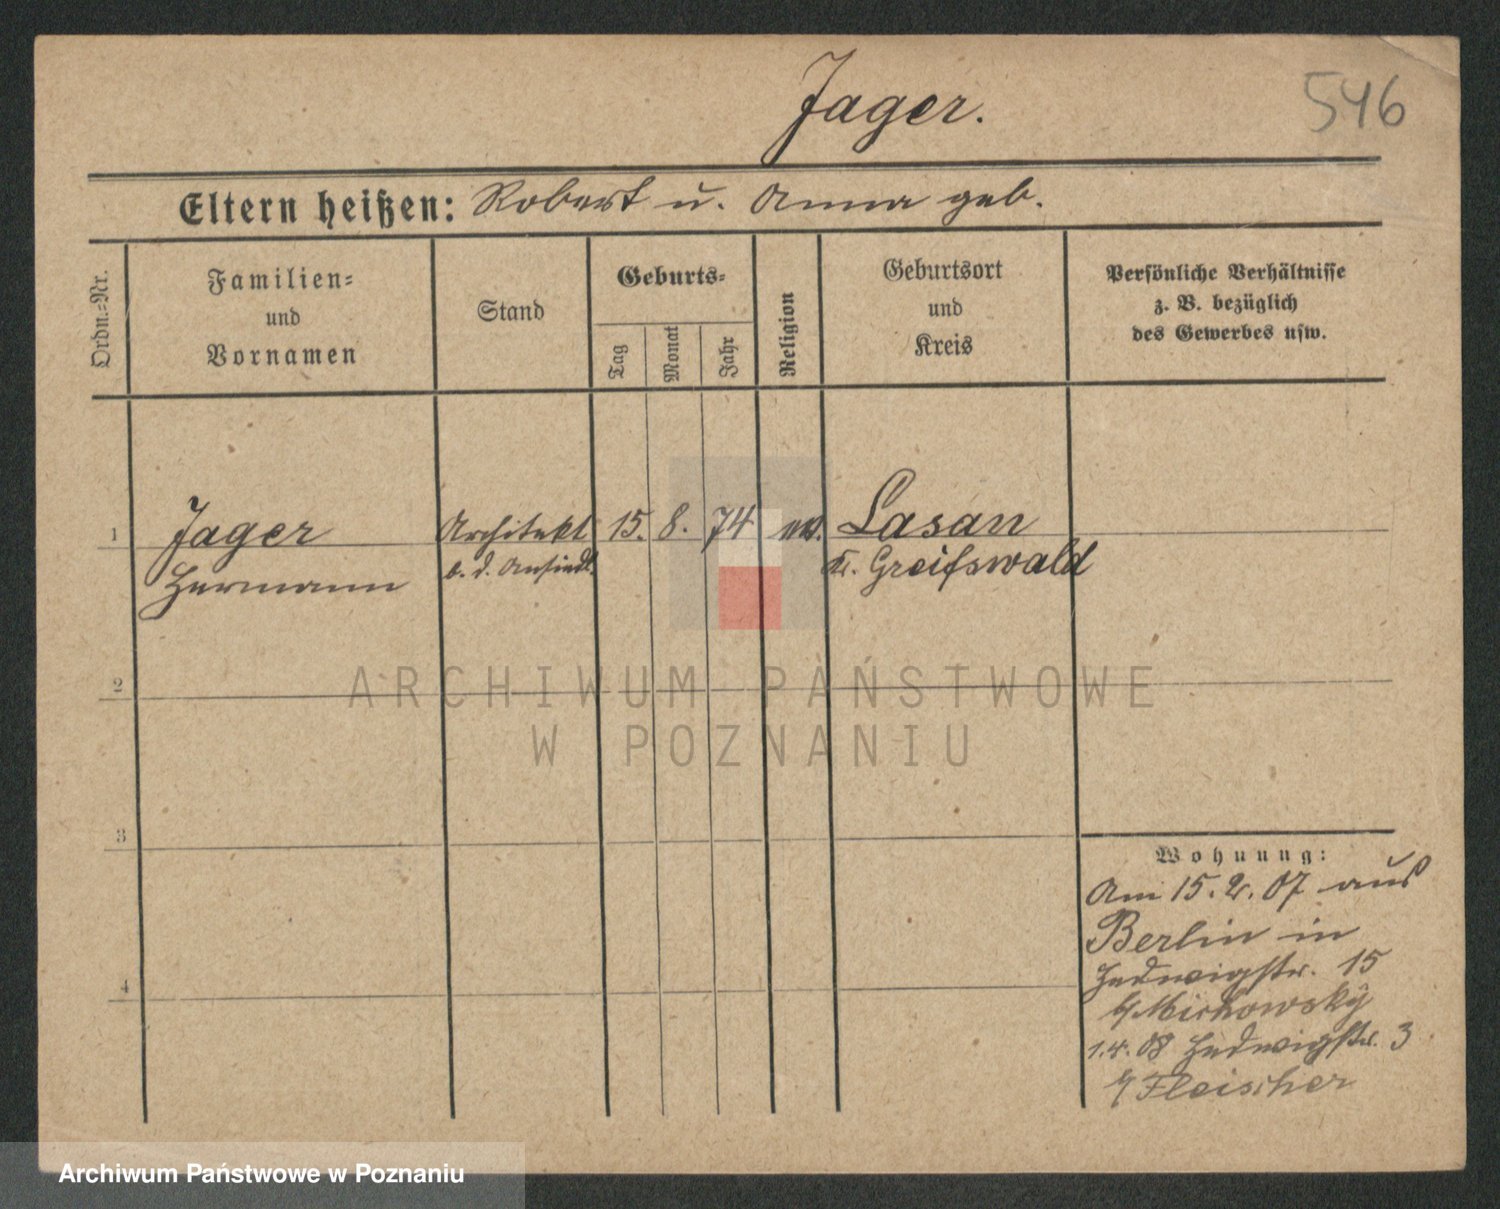 Jager.
546
Eltern heißen: Robert u. Anna geb.
Ordn.=Nr.
Familien=
und
Vornamen
Stand
Geburts=
Tag
Monat
Jahr
Religion
Geburtsort
und
Kreis
Persönliche Verhältnisse
z. B. bezüglich
des Gewerbes usw.
1
Jager
Hermann
Architekt
b. d. Ansiedl.
15. 8. 74
Lasan
Kr. Greifswald
2
ARCHIWUM PAŃSTWOWE
W POZNANIU
3
4
Wohnung:
Am 15.2.07 aus
Berlin in
Hedwigstr. 15
b/Michowsky
1.4.08 Hedwigstr. 3
b/Fleischer
Archiwum Państwowe w Poznaniu